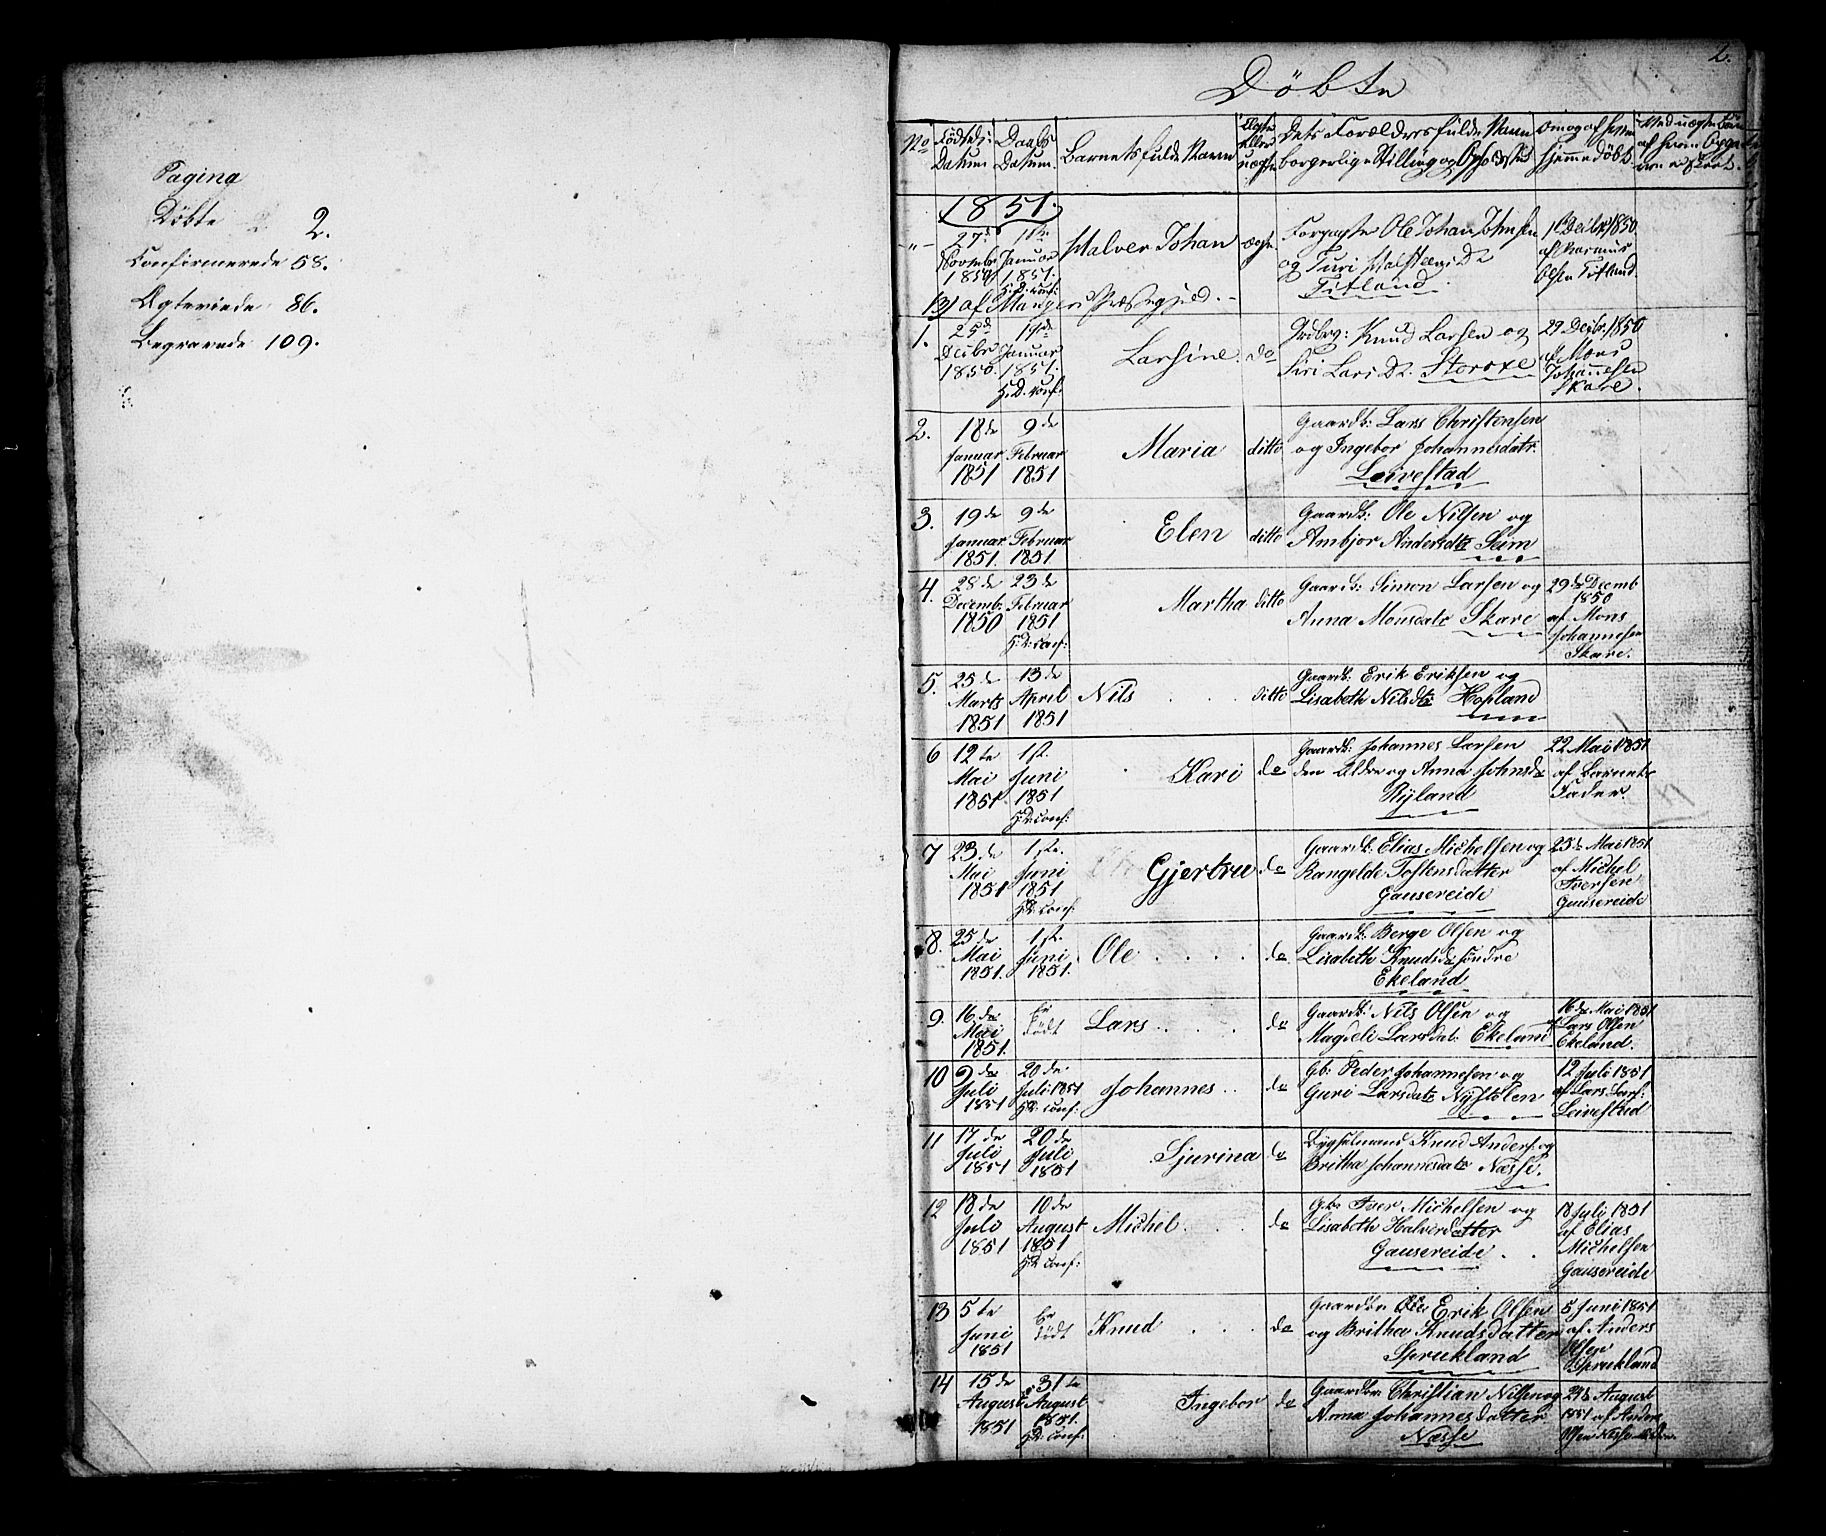 Pagina
Döbte 2.
Confirmerede 58.
Ægteviede 86.
Begravede 109.
2.
Döbte
No
Födsels
Datum
Daabs
Datum.
Barnets fulde Navn
Ægte
eller
uægte
Dets Forældres fulde Navn
borgerlige Stilling og
Om og af hvem
hjemmedöbt
1851.
27de
Novembr
1850
Januar
1851.
H: D. conf:
Halver Johan
ægte
Ole Johan Johnsen
og Turi
Titland.
1 Decbr 1850
af Rasmus
Olsen Titland
af Manger Præstegjeld.
1.
25de
Decbr
1850.
19de
Januar
1851.
H: D. conf:
Larsine.
do
Knud Larsen og
Siri Lars Dr. Storoxe
29 Decbr. 1850
af Mons
Johannesen
Skare.
2.
18de
Januar
1851
9de
Februar
1851
Maria
ditto
Gaardb: Lars Christensen
og Ingebor Johannesdatr.
Leivestad
3.
19de
Januar
1851.
9de
Februar
1851
Elen
ditto
Gaardb: Ole Nilsen og
Ambjor Andersdtr Seim
4.
28de
Decemb.
1850
23de
Februar
1851
H: D: conf:
Martha
ditto
Gaardb: Simon Larsen og
Anna Monsdatr Skare
29de Decemb
1850
af Mons
Johannesen
Skare.
5.
25de
Marts
1851
13de
April
1851
Nils
ditto
Gaardb: Erik Eriksen og
Lisabeth Nilsdtr Hopland
6
12te
Mai
1851
1st.
Juni
1851
H: D: conf:
Kari
do
Gaardb: Johannes Larsen
den Ældre og Anna Johnsdr
Ryland
22 Mai 1851
af Barnets
Fader.
7
23de
Mai
1851
1ste.
Juni
1851
H: D: conf:
Gjertru
do
Gaardb: Elias Michelsen og
Rangelde Tostensdatter
Gausereide
25de Mai 1851
af Michel
Iversen
Gausereide
8.
25de
Mai
1851.
1st.
Juni
1851.
Ole
do
Gaardb: Berge Olsen og
Lisabeth Knudsdr söndre
Ekeland
9.
16de
Mai
1851.
Er
Död
Lars
do
Gaardb: Nils Olsen og
Magdeli Larsdat. Ekeland
16de Mai 1851
af Lars Olsen
Ekeland.
10
9de
Juli
1851
20de
Juli 1851
H: D: conf:
Johannes
do
Gb: Peder Johannesen og
Guri Larsdatr Nystölen
12 Juli 1851
af Lars Lars:
Leivestad
11
17de
Juli
1851
20de
Juli
1851
Sjurina
do
Bygselmand Knud Anders: og
Britha Johannesdatr Næsse.
12
18de
Juli
1851
10de
August
1851
H: D conf:
Michel
do
Gb: Iver Michelsen og
Lisabeth Halverdatter
Gausereide
18 Juli 1851
af Elias
Michelsen
Gausereide
13
5te
Juni
1851
Er
död
Knud
do
Gaardbr Erik Olsen
og Britha Knudsdatter
Sprukland
5 Juni 1851
af Anders
Olsen
Sprukland
14
15de
August
1851
31te
August
1851.
H: D: conf:
Ingebor
do
Gaardbr: Christian Nilsen og
Anna Johannesdatter
Næsse
24de August
1851 af Anders
Olsen